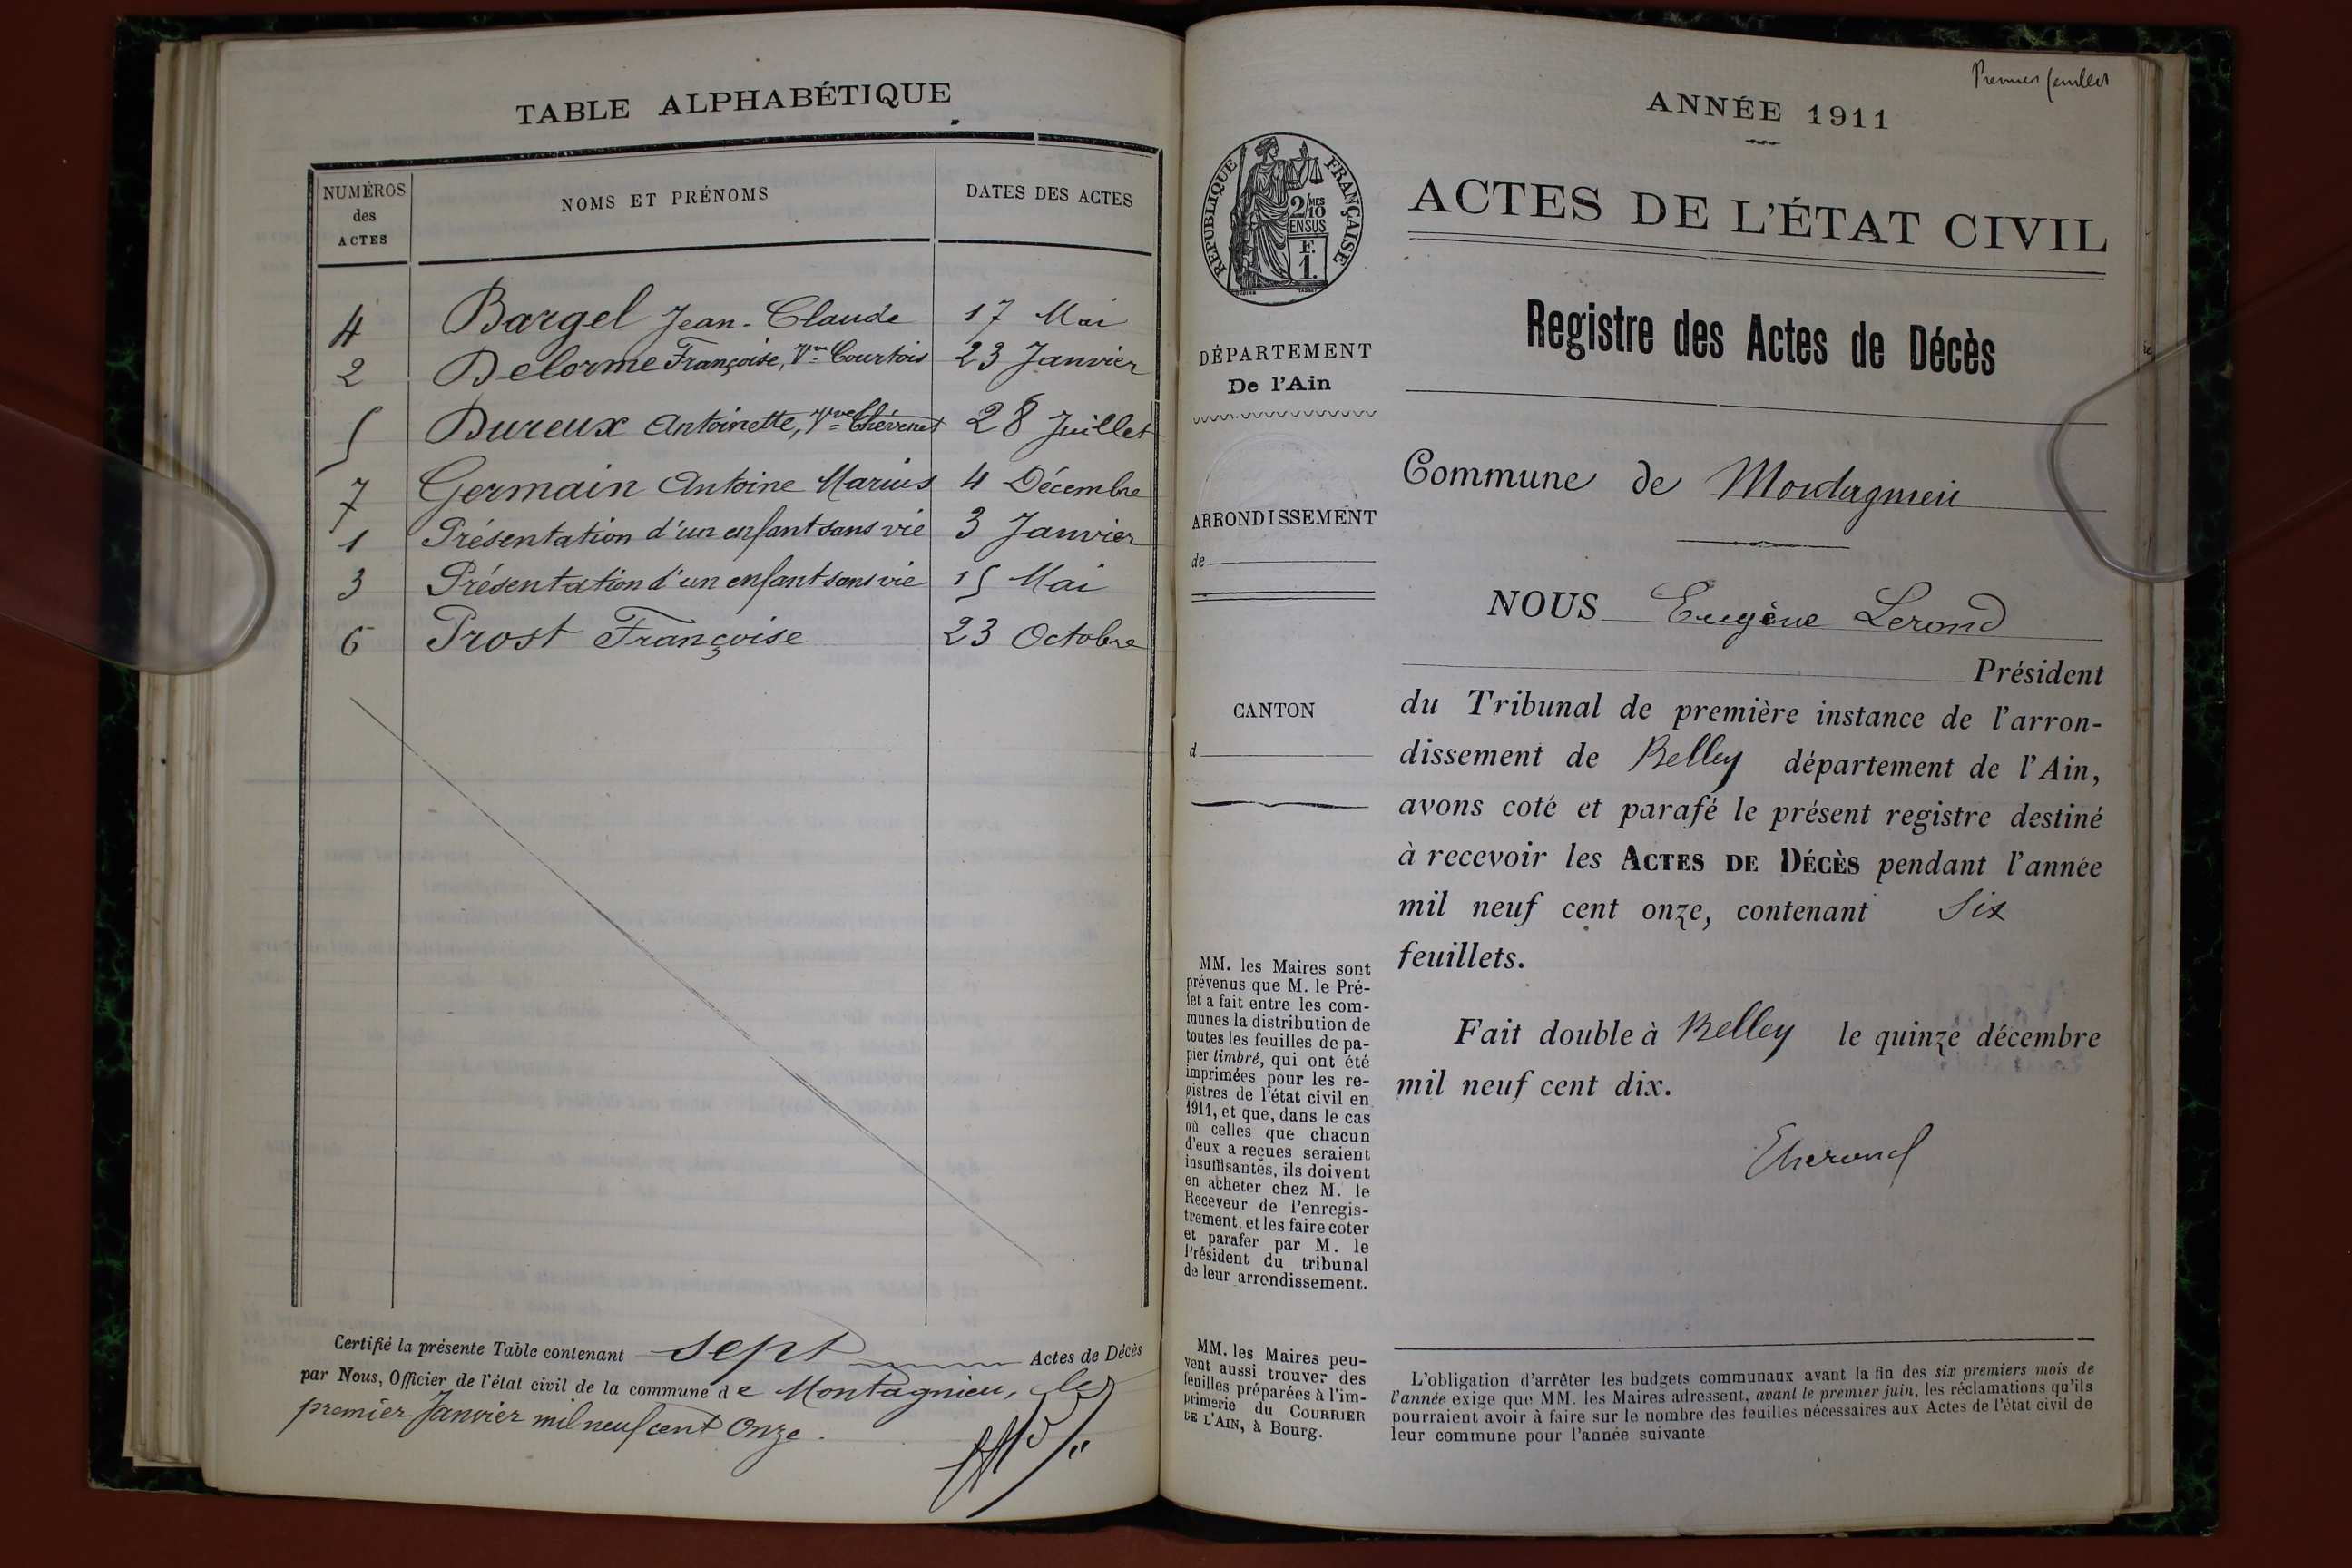 TABLE ALPHABÉTIQUE
NUMÉROS des ACTES
NOMS ET PRÉNOMS
DATES DES ACTES
4 Bargel Jean-Claude 17 Mai
2 Delorme Françoise, Vve Courtois 23 Janvier
5 Dureux Antoinette, Vve Chévenet 28 Juillet
7 Germain Antoine Marius 4 Décembre
1 Présentation d'un enfant sans vie 3 Janvier
3 Présentation d'un enfant sans vie 15 Mai
6 Prost Françoise 23 Octobre
Certifié la présente Table contenant sept Actes de Décès
par Nous, Officier de l'état civil de la commune de Montagnieu, le
premier Janvier mil neuf cent Onze.
Premier
ANNÉE 1911
RÉPUBLIQUE FRANÇAISE
2/10 MES
EN SUS
F.
1.
ACTES DE L'ÉTAT CIVIL
Registre des Actes de Décès
DÉPARTEMENT
De l'Ain
ARRONDISSEMENT
de
CANTON
d
MM. les Maires sont
prévenus que M. le Pré-
fet a fait entre les com-
munes la distribution de
toutes les feuilles de pa-
pier timbré, qui ont été
imprimées pour les re-
gistres de l'état civil en
1911, et que, dans le cas
où celles que chacun
d'eux a reçues seraient
insuffisantes, ils doivent
en acheter chez M. le
Receveur de l'enregis-
trement, et les faire coter
et parafer par M. le
Président du tribunal
de leur arrondissement.
MM. les Maires peu-
vent aussi trouver des
feuilles préparées à l'im-
primerie du COURRIER
DE L'AIN, à Bourg.
Commune de Montagnieu
NOUS Eugène Lerond
Président
du Tribunal de première instance de l'arron-
dissement de Belley département de l'Ain,
avons coté et parafé le présent registre destiné
à recevoir les ACTES DE DÉCÈS pendant l'année
mil neuf cent onze, contenant Six
feuillets.
Fait double à Belley le quinze décembre
mil neuf cent dix.
L'obligation d'arrêter les budgets communaux avant la fin des six premiers mois de
l'année exige que MM. les Maires adressent, avant le premier juin, les réclamations qu'ils
pourraient avoir à faire sur le nombre des feuilles nécessaires aux Actes de l'état civil de
leur commune pour l'année suivante